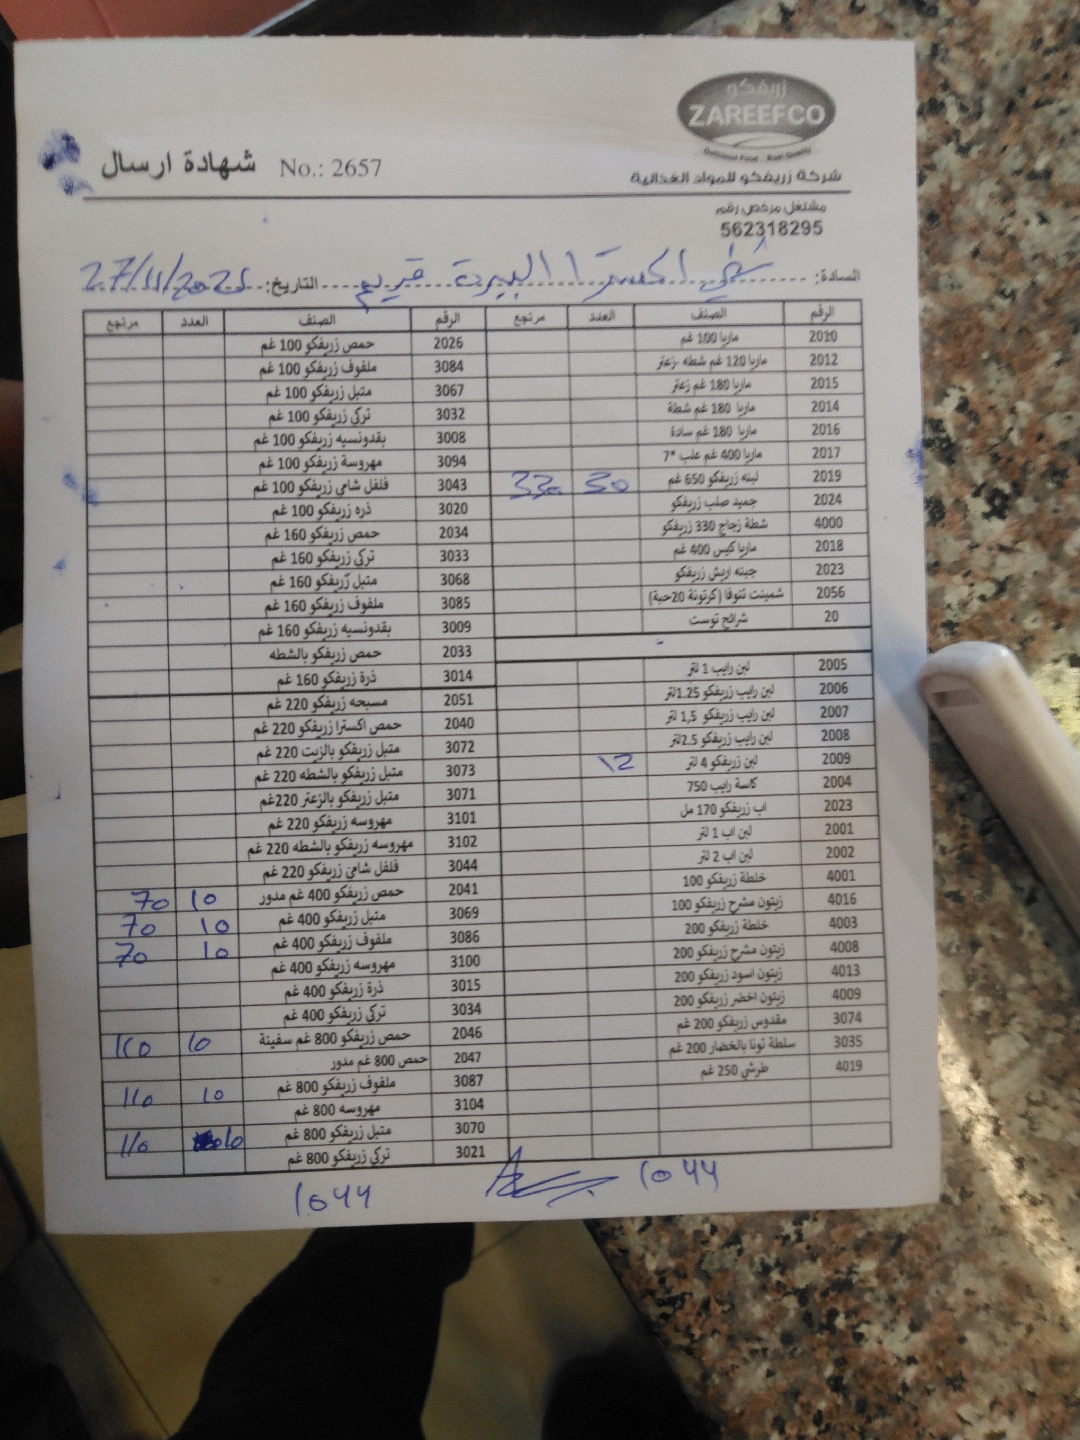 زريفكو
ZAREEFCO
National Food .. Real Quality
شركة زريفكو للمواد الغذائية
شهادة ارسال No.: 2657
مشتغل مرخص رقم
562318295
السادة: البيرة التاريخ: 27/11/2025
الرقم الصنف العدد مرتجع
2010 ماريا 100 غم
2012 ماريا 120 غم شطه -زعتر
2015 ماريا 180 غم زعتر
2014 ماريا 180 غم شطة
2016 ماريا 180 غم سادة
2017 ماريا 400 غم علب *7
2019 لبنه زريفكو 650 غم 30 330
2024 جميد صلب زريفكو
4000 شطة زجاج 330 زريفكو
2018 ماريا كيس 400 غم
2023 جبنه اريش زريفكو
2056 شمينت تنوفا (كرتونة 20حبة)
20 شرائح توست
2005 لبن رايب 1 لتر
2006 لبن رايب زريفكو 1.25لتر
2007 لبن رايب زريفكو 1,5 لتر
2008 لبن رايب زريفكو 2.5لتر
2009 لبن زريفكو 4 لتر 12
2004 كاسة رايب 750
2023 اب زريفكو 170 مل
2001 لبن اب 1 لتر
2002 لبن اب 2 لتر
4001 خلطة زريفكو 100
4016 زيتون مشرح زريفكو 100
4003 خلطة زريفكو 200
4008 زيتون مشرح زريفكو 200
4013 زيتون اسود زريفكو 200
4009 زيتون اخضر زريفكو 200
3074 مقدوس زريفكو 200 غم
3035 سلطة تونا بالخضار 200 غم
4019 طرشي 250 غم
الرقم الصنف العدد مرتجع
2026 حمص زريفكو 100 غم
3084 ملفوف زريفكو 100 غم
3067 متبل زريفكو 100 غم
3032 تركي زريفكو 100 غم
3008 بقدونسيه زريفكو 100 غم
3094 مهروسة زريفكو 100 غم
3043 فلفل شامي زريفكو 100 غم
3020 ذره زريفكو 100 غم
2034 حمص زريفكو 160 غم
3033 تركي زريفكو 160 غم
3068 متبل زريفكو 160 غم
3085 ملفوف زريفكو 160 غم
3009 بقدونسيه زريفكو 160 غم
2033 حمص زريفكو بالشطه
3014 ذرة زريفكو 160 غم
2051 مسبحه زريفكو 220 غم
2040 حمص اكسترا زريفكو 220 غم
3072 متبل زريفكو بالزيت 220 غم
3073 متبل زريفكو بالشطه 220 غم
3071 متبل زريفكو بالزعتر 220غم
3101 مهروسه زريفكو 220 غم
3102 مهروسه زريفكو بالشطه 220 غم
3044 فلفل شامي زريفكو 220 غم
2041 حمص زريفكو 400 غم مدور 10 70
3069 متبل زريفكو 400 غم 10 70
3086 ملفوف زريفكو 400 غم 10 70
3100 مهروسه زريفكو 400 غم
3015 ذرة زريفكو 400 غم
3034 تركي زريفكو 400 غم
2046 حمص زريفكو 800 غم سفينة 10 110
2047 حمص 800 غم مدور
3087 ملفوف زريفكو 800 غم 10 110
3104 مهروسه 800 غم
3070 متبل زريفكو 800 غم 10 110
3021 تركي زريفكو 800 غم
1044 1044